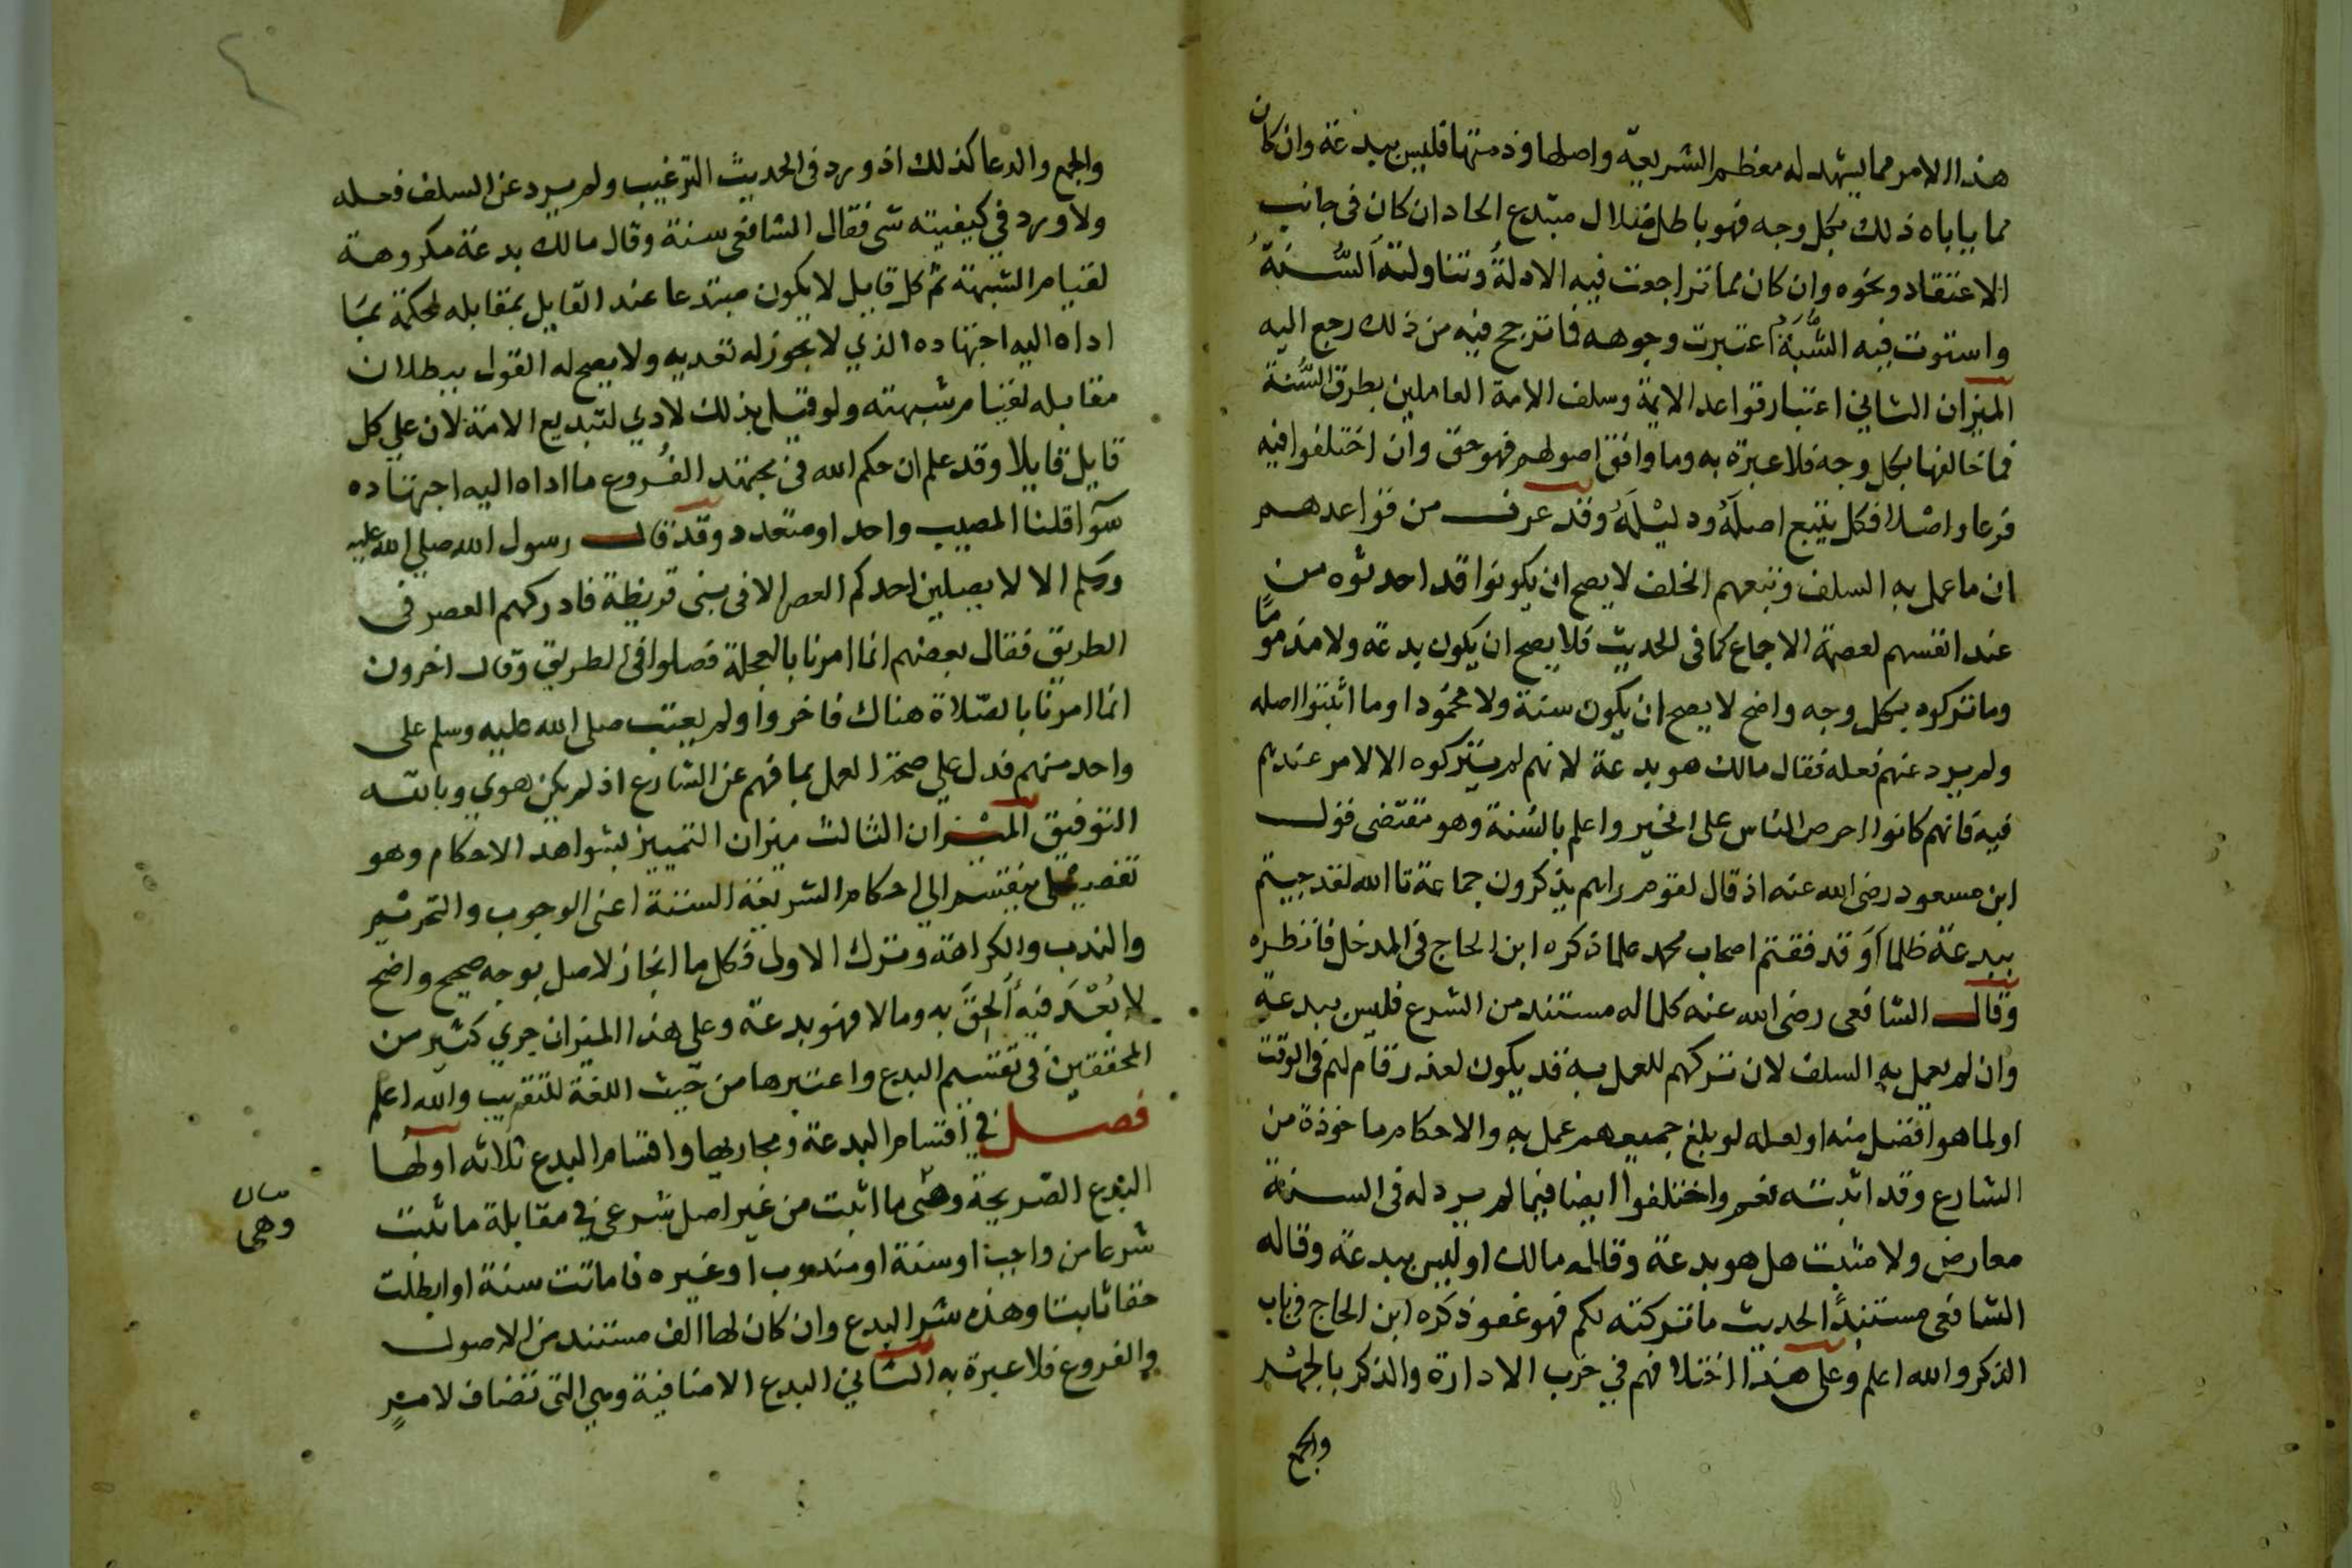 هذا الامر مما يشهد له معظم الشريعة واصلها وذمتها فليس ببدعة وان كان
مما ياباه ذلك بكل وجه فهو باطل ضلال مبتدع الحاد ان كان في جانب
الاعتقاد ونحوه وان كان مما تراجعت فيه الادلة وتناولته السنة
واستوت فيه الشبه اعتبرت وجوهه فما ترجح فيه من ذلك رجع اليه
الميزان الثاني اعتبار قواعد الايمة وسلف الامة العاملين بطرق السنة
فما خالفها بكل وجه فلا عبرة به وما وافق اصولهم فهو حق وان اختلفوا فيه
فرعا واصلا فكل يتبع اصله ودليله وقد عرف من قواعدهم
ان ما عمل به السلف وتبعهم الخلف لا يصح ان يكونوا قد احدثوه من
عند انفسهم لعصمة الاجماع كما في الحديث فلا يصح ان يكون بدعة ولا مذموما
وما تركوه بكل وجه واضح لا يصح ان يكون سنة ولا محمودا وما اثبتوا اصله
ولم يرد عنهم فعله فقال مالك هو بدعة لانهم لم يتركوه الا لامر عندهم
فيه فانهم كانوا احرص الناس على الخير واعلم بالسنة وهو مقتضى قول
ابن مسعود رضى الله عنه اذ قال لقوم راهم يذكرون جماعة تا الله لقد جيتم
ببدعة ظلما او قد فقتم اصحاب محمد علما ذكره ابن الحاج في المدخل فانظره
وقال الشافعى رضى الله عنه كلما له مستند من الشرع فليس ببدعة
وان لم يعمل به السلف لان تركهم للعمل به قد يكون لعذر قام لهم في الوقت
او لما هو افضل منه او لعله لو بلغ جميعهم عمل به والاحكام ماخوذة من
الشارع وقد اثبتته نعم واختلفوا ايضا فيما لم يرد له في السنة
معارض ولا مثبت هل هو بدعة وقاله مالك او ليس ببدعة وقاله
الشافعى مستندا لحديث ما تركته لكم فهو عفو ذكره ابن الحاج في باب
الذكر والله اعلم وعلى هذا اختلافهم في حزب الادارة والذكر بالجهر
والجمع
والجمع والدعا كذلك اذ ورد في الحديث الترغيب ولم يرد عن السلف فعله
ولا ورد في كيفيته شى فقال الشافعى سنة وقال مالك بدعة مكروهة
لقيام الشبهة ثم كل قايل لا يكون مبتدعا عند القايل بمقابله لحكمة بما
اداه اليه اجتهاده الذي لا يجوز له تعديه ولا يصح له القول ببطلان
مقابله لقيام شبهته ولو قيل بذلك لادي لتبديع الامة لان علي كل
قايل قايلا وقد علم ان حكم الله في مجتهد الفروع ما اداه اليه اجتهاده
سوا قلنا المصيب واحد او متعدد وقد قال رسول الله صلي الله عليه
وسلم الا لا يصلين احدكم العصر الا في بنى قريظة فادركهم العصر في
الطريق فقال بعضهم انما امرنا بالعجلة فصلوا في الطريق وقال اخرون
انما امرنا بالصلاة هناك فاخروا ولم يعتب صلى الله عليه وسلم على
واحد منهم فدل علي صحة العمل بما فهم عن الشارع اذ لم يكن هوي وبالله
التوفيق الميزان الثالث ميزان التمييز بشواهد الاحكام وهو
تفصيلي ينقسم الى احكام الشريعة الستة اعنى الوجوب والتحريم
والندب والكراهة وترك الاولى فكل ما انحاز لاصل بوجه صحيح واضح
لا بعد فيه الحق به وما لا فهو بدعة وعلى هذا الميزان جري كثير من
المحققين في تقسيم البدع واعتبرها من حيث اللغة للتقريب والله اعلم
فصل في اقسام البدعة ومجاريها واقسام البدع ثلاثه اولها
البدع الصريحة وهى ما اثبت من غير اصل شرعي في مقابلة ما ثبت
شرعا من واجب او سنة او مندوب او غيره فاماتت سنة او ابطلت
حقا ثابتا وهذه شر البدع وان كان لها الف مستند من الاصول
والفروع فلا عبرة به الثاني البدع الاضافية وهي التى تضاف لامر
بيان
وهى